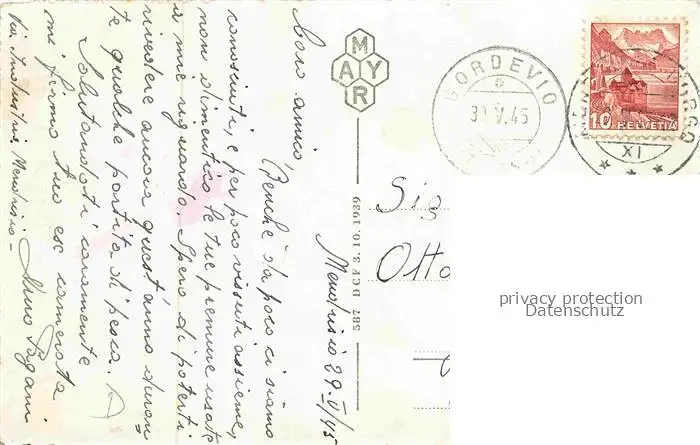 Mendrisio 29.V/45
Caro amico,
Benchè da poco ci siamo
conosciuti, e per poco vissuti assieme,
non dimentico le tue premure usate
a mio riguardo. Spero di poterti
rivedere ancora quest'anno duran-
te qualche partita di pesca.
Salutandoti caramente
mi firmo tuo ex camerata
Nino Pagani
Via Industria, Mendrisio
MAYR
587 DCF 3.10.1939
GORDEVIO
30.V.45
XI
10 HELVETIA
Sig
Otto
privacy protection
Datenschutz